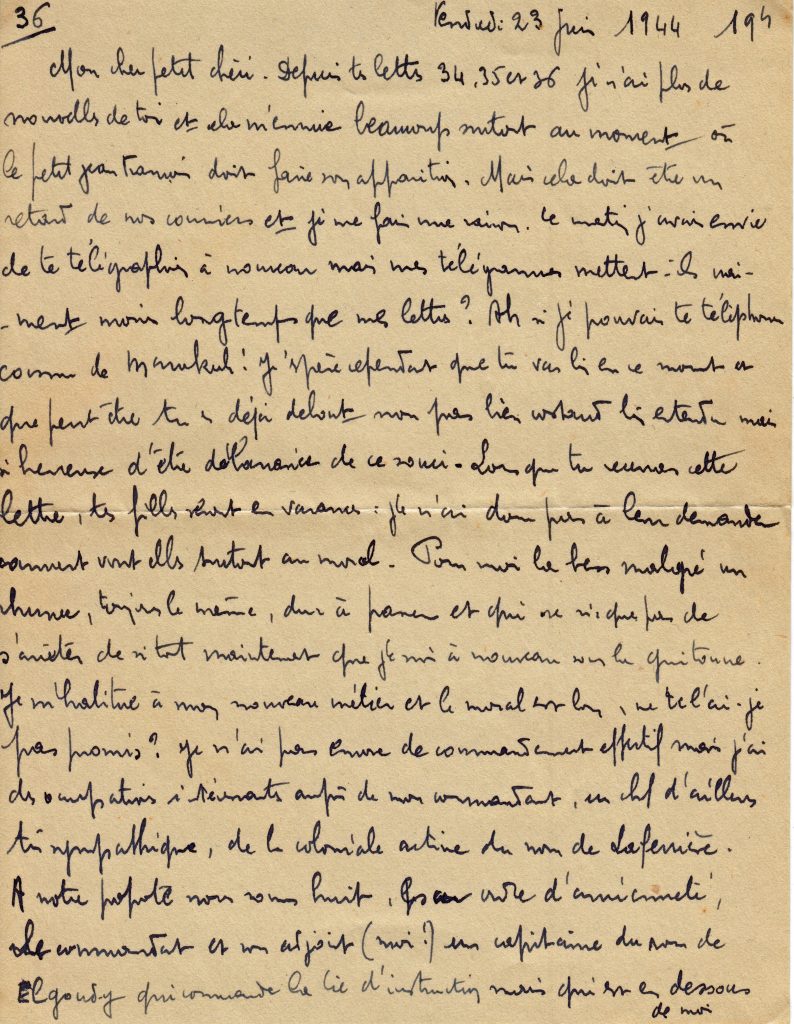 36
Vendredi 23 Juin 1944 194
Mon cher petit chéri. Depuis tes lettres 34, 35 et 36 je n'ai plus de
nouvelles de toi et cela m'ennuie beaucoup surtout au moment où
le petit Jean François doit faire son apparition. Mais cela doit être un
retard de nos courriers et je me fais une raison. Ce matin j'avais envie
de te télégraphier à nouveau mais mes télégrammes mettent-ils vrai-
-ment moins longtemps que mes lettres ? Ah si je pouvais te téléphoner
comme de ! J'espère cependant que tu vas bien en ce moment et
que peut être tu es déjà debout non pas bien costaud bien entendu mais
si heureuse d'être débarrassée de ce souci. Lorsque tu recevras cette
lettre, tes filles seront en vacances : je n'ai donc pas à leur demander
comment vont elles surtout au moral. Pour moi ça bess malgré un
rhume, toujours le même, dur à passer et qui ne risque pas de
s'arrêter de si tôt maintenant que je suis à nouveau sous la guitoune.
Je m'habitue à mon nouveau métier et le moral est bon, ne te l'ai-je
pas promis ? Je n'ai pas encore de commandement effectif mais j'ai
des occupations intéressantes auprès de mon commandant, un chef d'ailleurs
très sympathique, de la coloniale active du nom de Laferrière.
A notre popote nous sommes huit, ordre d'ancienneté,
le commandant et son adjoint (moi !) un capitaine du nom de
Elgoudy qui commande la Cie d'instruction mais qui est en dessous
de moi